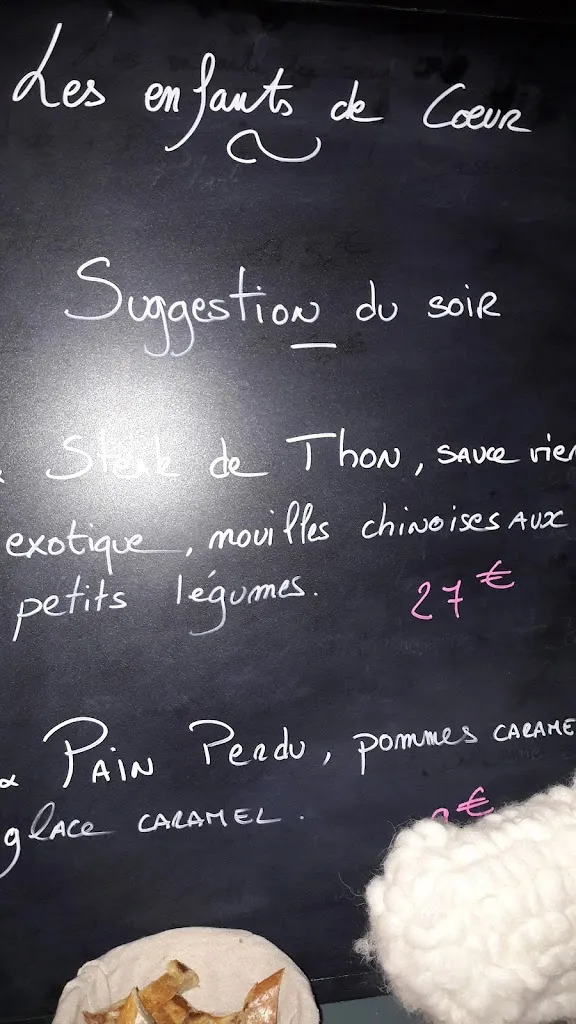 Les enfants de Coeur
Suggestion du soir
Steak de Thon, sauce vier
exotique, nouilles chinoises aux
petits légumes. 27€
Pain Perdu, pommes carame
glace caramel. €